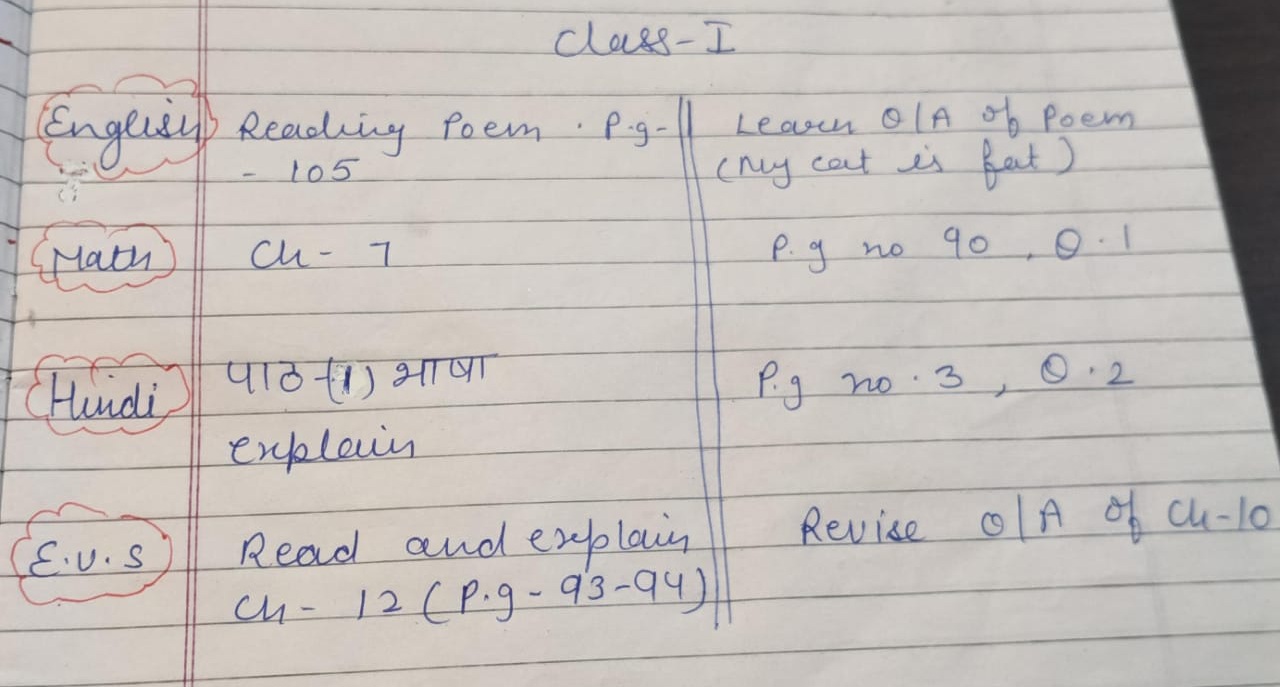 Class-I
English Reading Poem . P.g- Learn Q/A of Poem
- 105 (My cat is fat)
Math Ch- 7 P.g no 90 , Q.1
Hindi पाठ-(1) भाषा P.g no.3 , Q.2
explain
E.V.S Read and explain Revise Q/A of Ch-10
Ch- 12 (P.g- 93-94)